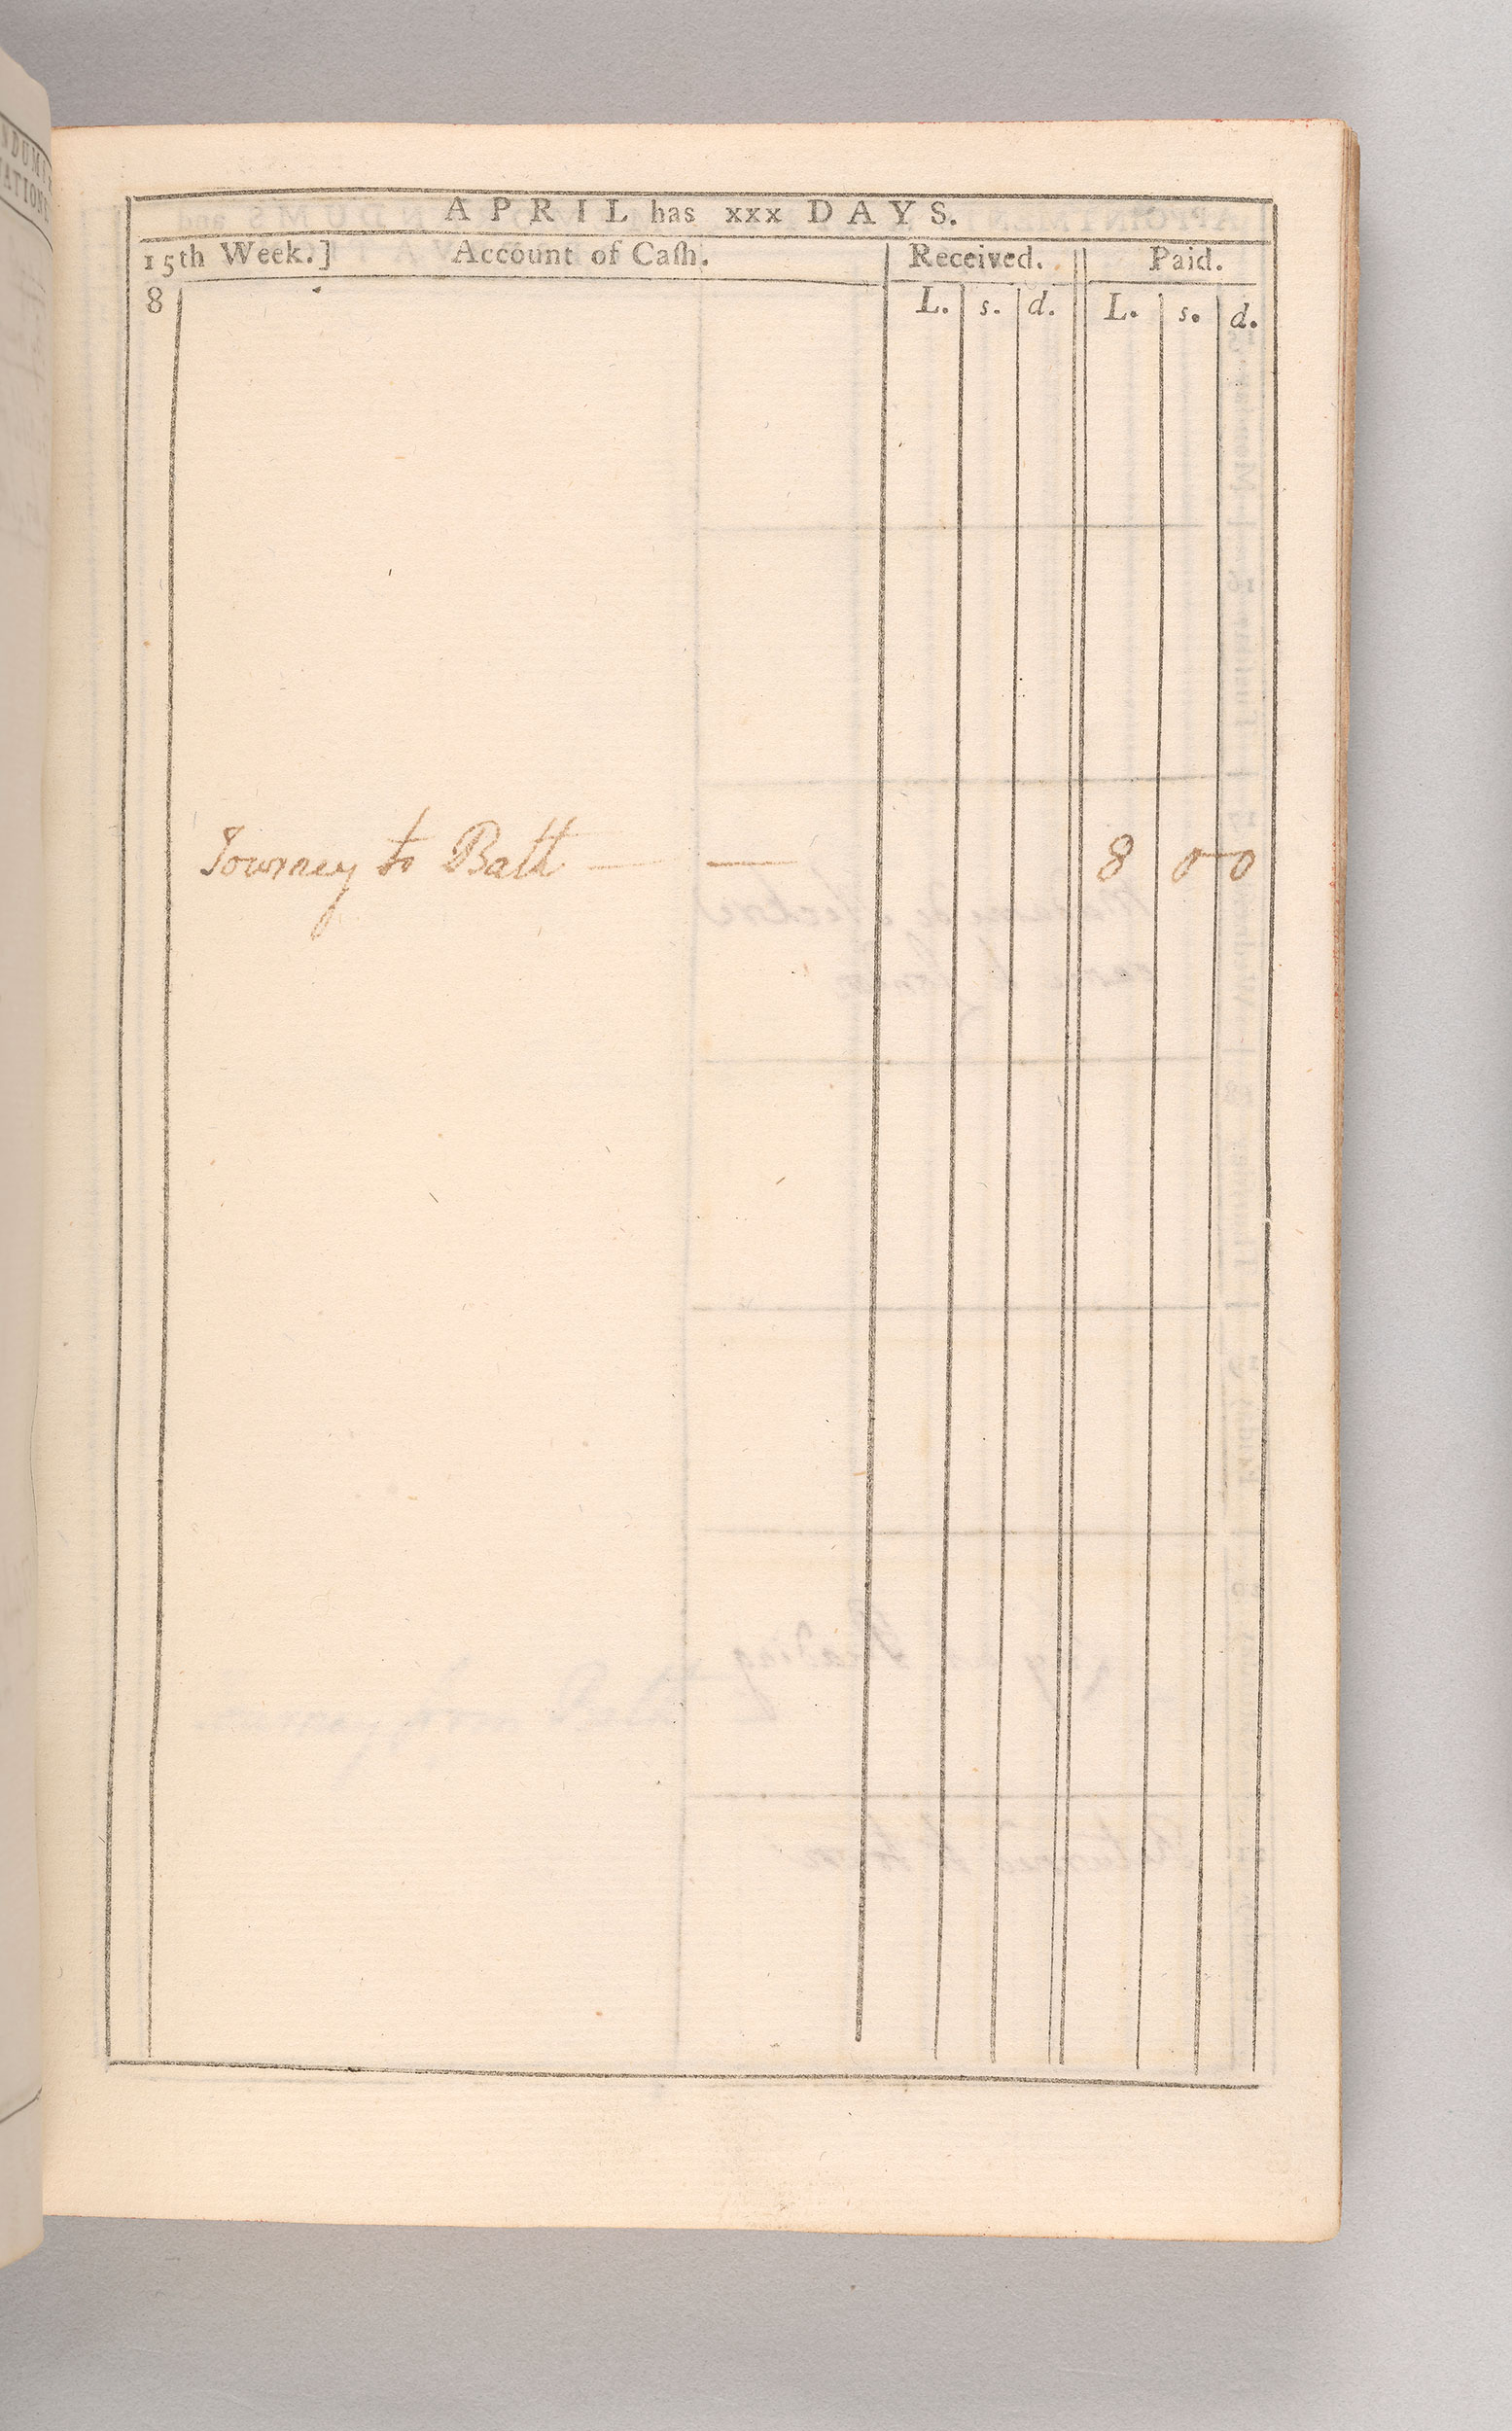 NDUM
VATION
APRIL has xxx DAYS.
15th Week.] Account of Caſh. Received. Paid.
8 L. s. d. L. s. d.
Journey to Bath — — 8 0 0